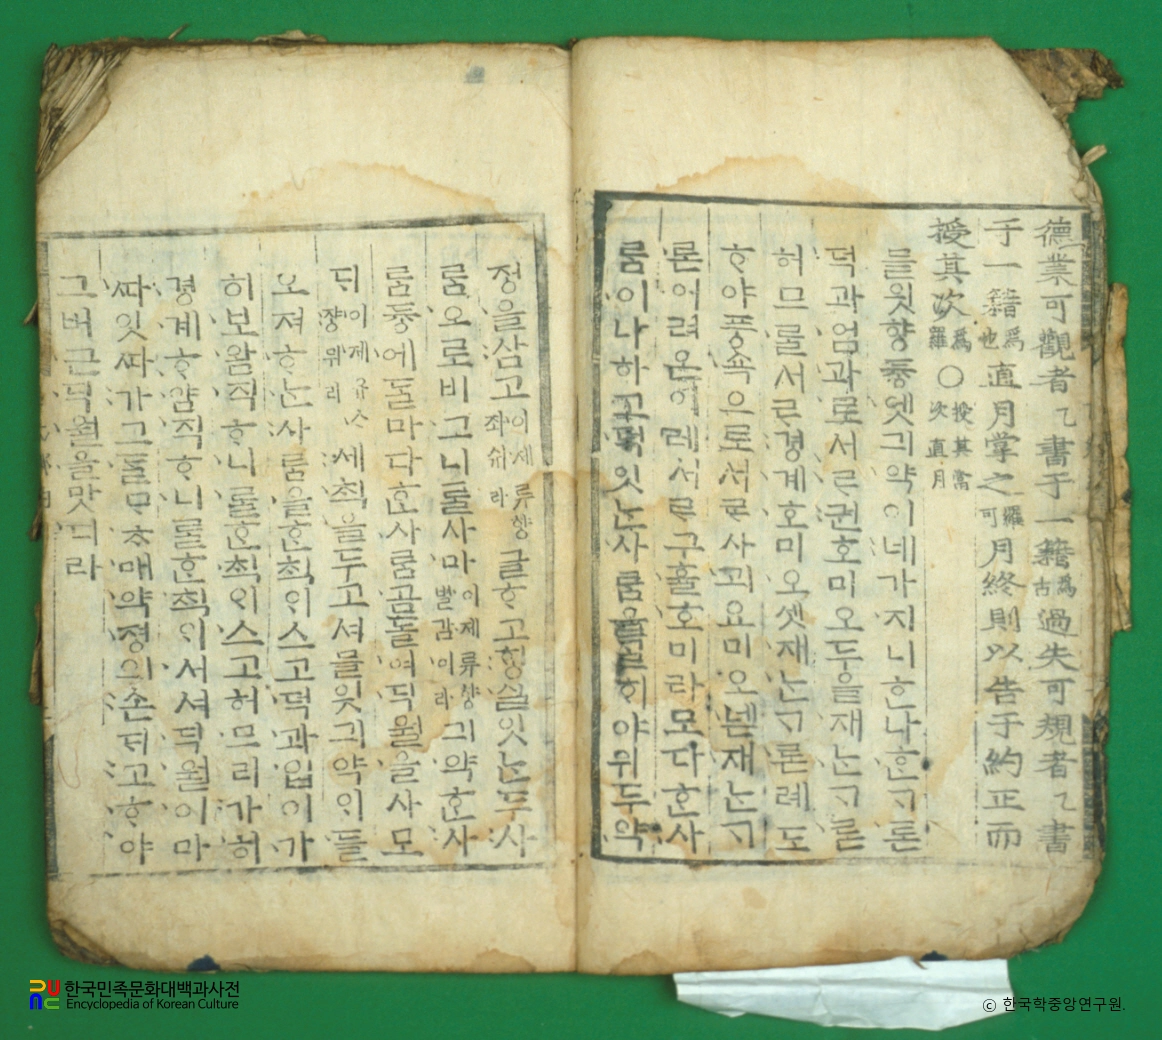 德業可觀者乙書于一籍爲古過失可規者乙書
于一籍爲也直月掌之羅可月終則以告于約正而
授其次爲羅○授其當次直月
믈읫향듕엣긔약이네가지니ᄒᆞ나ᄒᆞᆫᄀᆞ론
덕과업과로서르권호미오둘재ᄂᆞᆫᄀᆞ론
허므룰서르경계호미오셋재ᄂᆞᆫᄀᆞ론례도
ᄒᆞ야풍쇽으로서르사괴요미오넫재ᄂᆞᆫᄀᆞ
론어려온이레서르구휼호미라모다ᄒᆞᆫ사
룸이나하고덕잇ᄂᆞᆫ사룸을히야위두약
졍을삼고이제류향좌슈라글ᄒᆞ고ᄒᆡᆼ실잇ᄂᆞᆫ두사
룸오로비고니룰사마이제류향발감이라긔약ᄒᆞᆫ사
룸듕에ᄃᆞᆯ마다ᄒᆞᆫ사룸곰돌여딕월을사모
ᄃᆡ이제유ᄉᆞ쟝뮈리세ᄎᆡᆨ을두고셔믈읫긔약의들
오져ᄒᆞᄂᆞᆫ사룸을ᄒᆞᆫᄎᆡᆨ의스고덕과업이가
히보왐직ᄒᆞ니룰ᄒᆞᆫᄎᆡᆨ의스고허므리가히
경계ᄒᆞ얌직ᄒᆞ니룰ᄒᆞᆫᄎᆡᆨ의서셔딕월이마
따잇따가그ᄃᆞᆯᄆᆞᄎᆞ매약졍의손ᄃᆡ고ᄒᆞ야
그버근딕월을맛디라
한국민족문화대백과사전
Encyclopedia of Korean Culture
ⓒ 한국학중앙연구원.